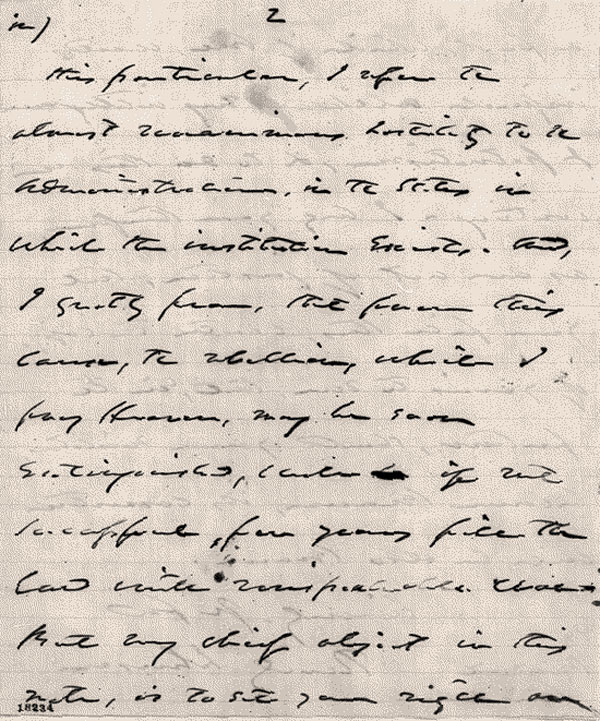 in)
2
this particular, I refer to
almost unanimous hostility to the
administration, in the States in
which the institution exists. And,
I greatly fear, that from this
cause, the rebellion, which I
pray Heaven, may be soon
extinguished, if not
for years fill the
land with
But my chief object in this
note, is to set your right on
18234